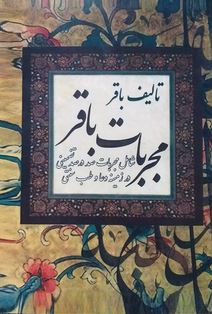 تالیف باقر
مجربات باقر
شامل مجربات صد در صد تضمینی
در زمینه دعا و طب سنتی